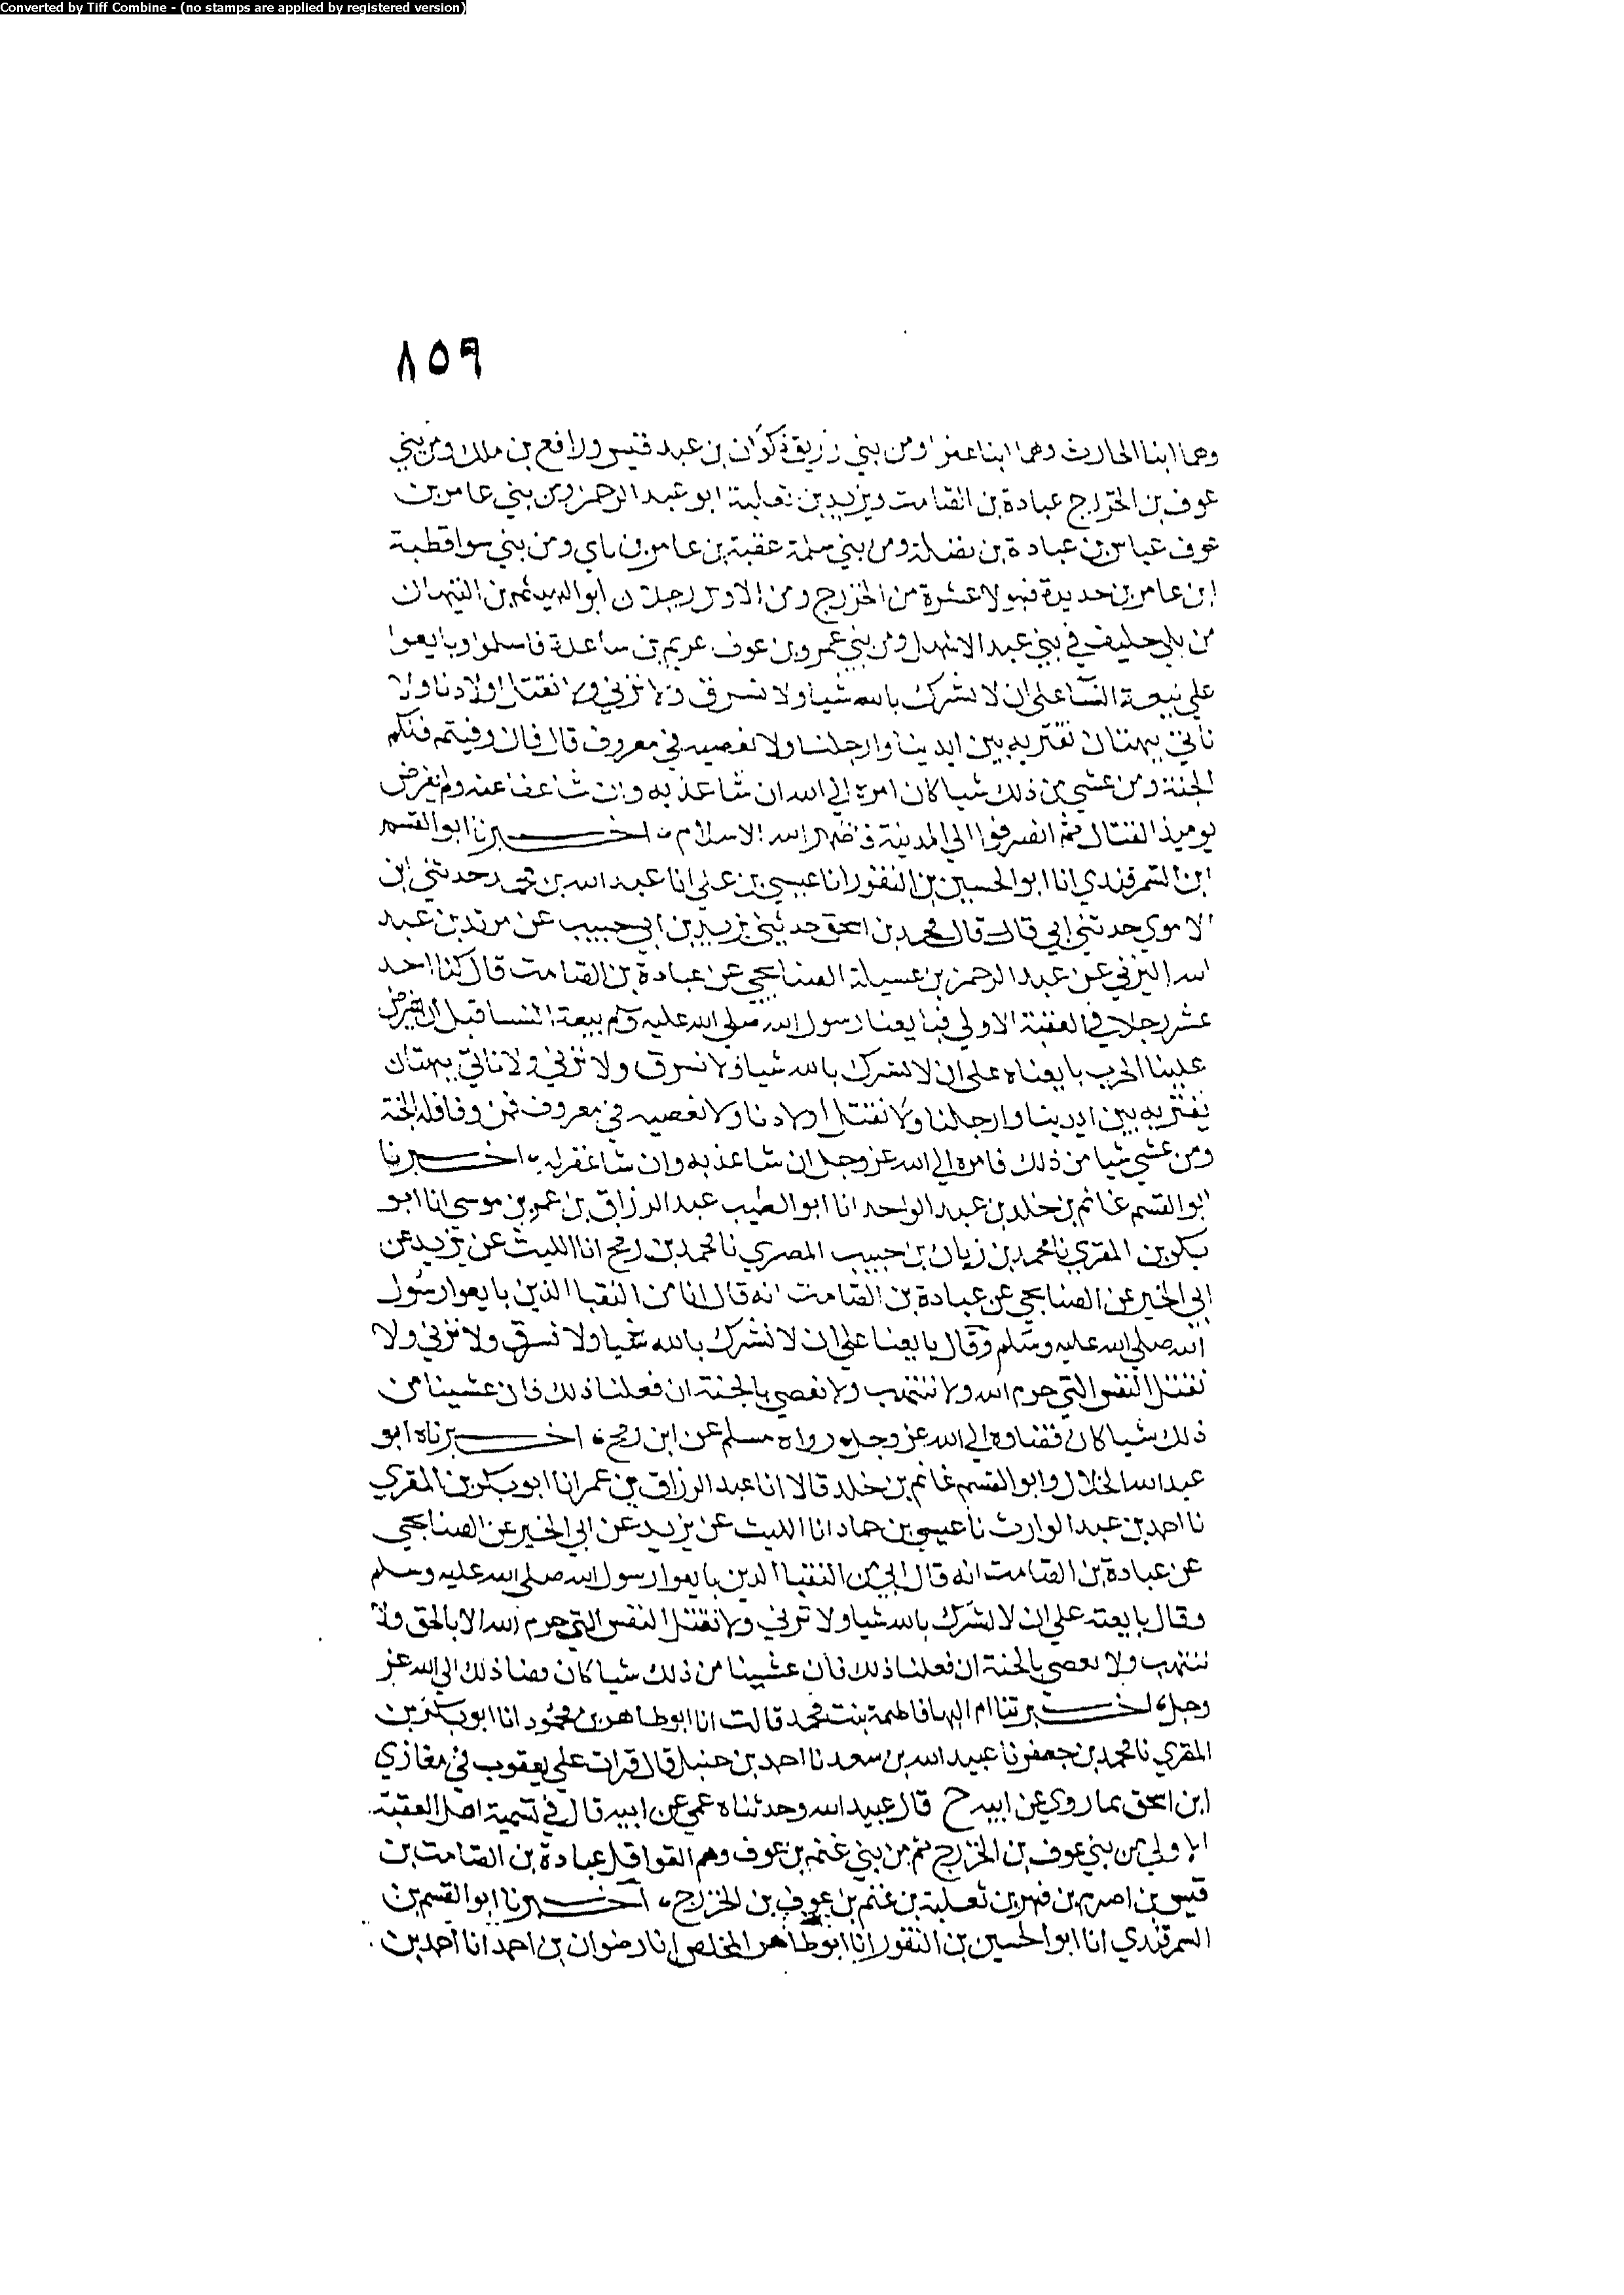 Converted by Tiff Combine - (no stamps are applied by registered version)
٨٥٩
وهما ابنا الحارث وهما ابنا عفرا ومن بني زريق ذكوان بن عبد قيس ورافع بن ملك ومن بني
عوف بن الخزرج عبادة بن الصامت ويزيد بن ثعلبة ابو عبد الرحمن ومن بني عامر بن
عوف عباس بن عبادة بن نضلة ومن بني سلمة عقبة بن عامر بن نابي ومن بني سوا قطبة
ابن عامر بن حديدة فهولا عشرة من الخزرج ومن الاوس رجلان ابو الهيثم بن التيهان
من بلي حليف في بني عبد الاشهل ومن بني عمرو بن عوف عويم بن ساعدة فاسلموا وبايعوا
علي بيعة النسا على ان لا نشرك بالله شيا ولا نسرق ولا نزني ولا نقتل اولادنا ولا
ناتي ببهتان نفتريه بين ايدينا وارجلنا ولا نعصيه في معروف قال فان وفيتم فلكم
الجنة ومن غشي من ذلك شيا كان امره الي الله ان شا عذبه وان شا عفا عنه ولم يفرض
يوميذ القتال ثم انصرفوا الي المدينة فظهر الله الاسلام، اخبرنا ابو القسم
ابن السمرقندي انا ابو الحسين بن النقور انا عيسي بن علي انا عبد الله بن محمد حدثني ابن
الاموي حدثني ابي قال قال محمد بن اسحق حدثني يزيد بن ابي حبيب عن مرثد بن عبد
الله اليزني عن عبد الرحمن بن عسيلة الصنابحي عن عبادة بن الصامت قال كنا احد
عشر رجلا في العقبة الاولي فبايعنا رسول الله صلي الله عليه وسلم بيعة النسا قبل ان يفرض
علينا الحرب بايعناه على ان لا نشرك بالله شيا ولا نسرق ولا نزني ولا ناتي ببهتان
نفتريه بين ايدينا وارجلنا ولا نقتل اولادنا ولا نعصيه في معروف فمن وفا فله الجنة
ومن غشي شيا من ذلك فامره الي الله عز وجل ان شا عذبه وان شا غفر له، اخبرنا
ابو القسم غانم بن خلد بن عبد الواحد انا ابو الطيب عبد الرزاق بن عمر بن موسى انا ابو
بكر بن المقري نا محمد بن زبان بن حبيب المصري نا محمد بن رمح انا الليث عن يزيد عن
ابي الخير عن الصنابحي عن عبادة بن الصامت انه قال انا من النقبا الذين بايعوا رسول
الله صلي الله عليه وسلم وقال بايعنا على ان لا نشرك بالله شيا ولا نسرق ولا نزني ولا
نقتل النفس التي حرم الله ولا ننتهب ولا نعصي بالجنة ان فعلنا ذلك فان غشينا من
ذلك شيا كان قضاوه الي الله عز وجل، رواه مسلم عن ابن رمح، اخبرناه ابو
عبد الله الخلال وابو القسم غانم بن خلد قالا انا عبد الرزاق بن عمر انا ابو بكر بن المقري
نا احمد بن عبد الوارث نا عيسي بن حماد انا الليث عن يزيد عن ابي الخير عن الصنابحي
عن عبادة بن الصامت انه قال اني من النقبا الذين بايعوا رسول الله صلى الله عليه وسلم
وقال بايعته علي ان لا نشرك بالله شيا ولا نزني ولا نقتل النفس التي حرم الله الا بالحق ولا
ننتهب ولا نعصي بالجنة ان فعلنا ذلك فان غشينا من ذلك شيا كان قضا ذلك الي الله عز
وجل، اخبرتنا ام البها فاطمة بنت محمد قالت انا ابو طاهر بن محمود انا ابو بكر بن
المقري نا محمد بن جعفر نا عبيد الله بن سعد نا احمد بن حنبل قال قرات علي يعقوب في مغازي
ابن اسحق بما روي عن ابيه ح قال عبيد الله وحدثناه عمي عن ابيه قال في تسمية اهل العقبة
الاولي من بني عوف بن الخزرج ثم من بني غنم بن عوف وهم القواقل عبادة بن الصامت بن
قيس بن اصرم بن فهر بن ثعلبة بن غنم بن عوف بن الخزرج، اخبرنا ابو القسم بن
السمرقندي انا ابو الحسين بن النقور انا ابو طاهر المخلص انا رضوان بن احمد انا احمد بن